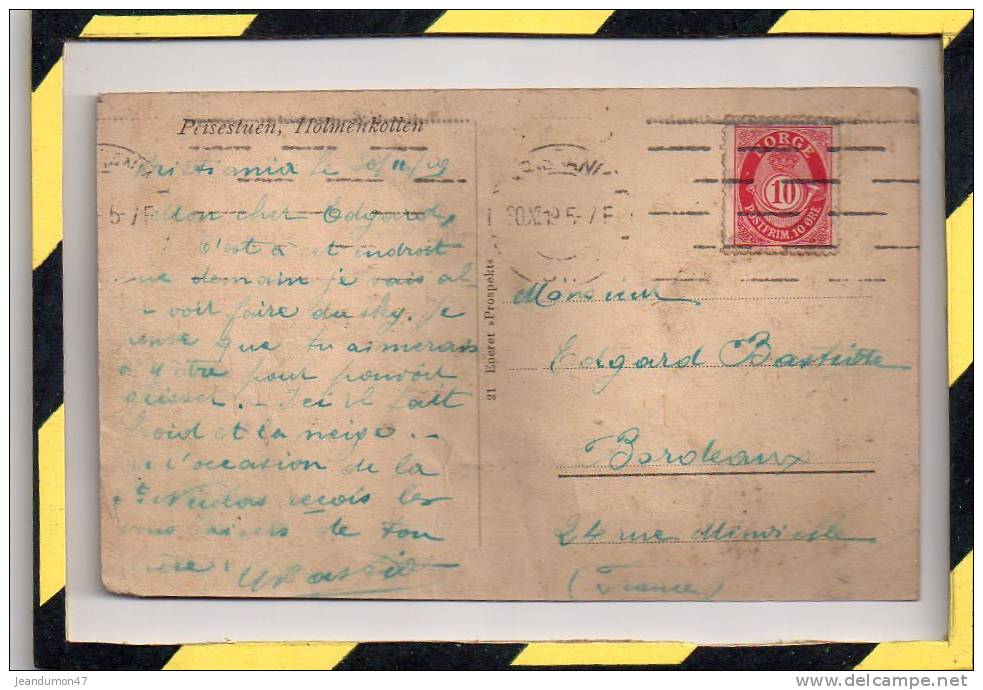 Peisestuen, Holmenkollen
Kristiania le 30/11/19
Mon cher Edgard,
C'est à cet endroit
que demain je vais al
voir faire du sky. Je
pense que tu aimerais
à y être pour pouvoir
glisser. - Ici il fait
froid et la neige. -
de l'occasion de la
St Nicolas reçois les
bons baisers de ton
père.
5-7E
20.XI.19.5-7E
NORGE
10
POSTFRIM. 10 ØRE
21 Eneret »Prospekt«
Monsieur
Edgard Bastide
Bordeaux
24 rue
(France)
jeandumon47
delcampe.net